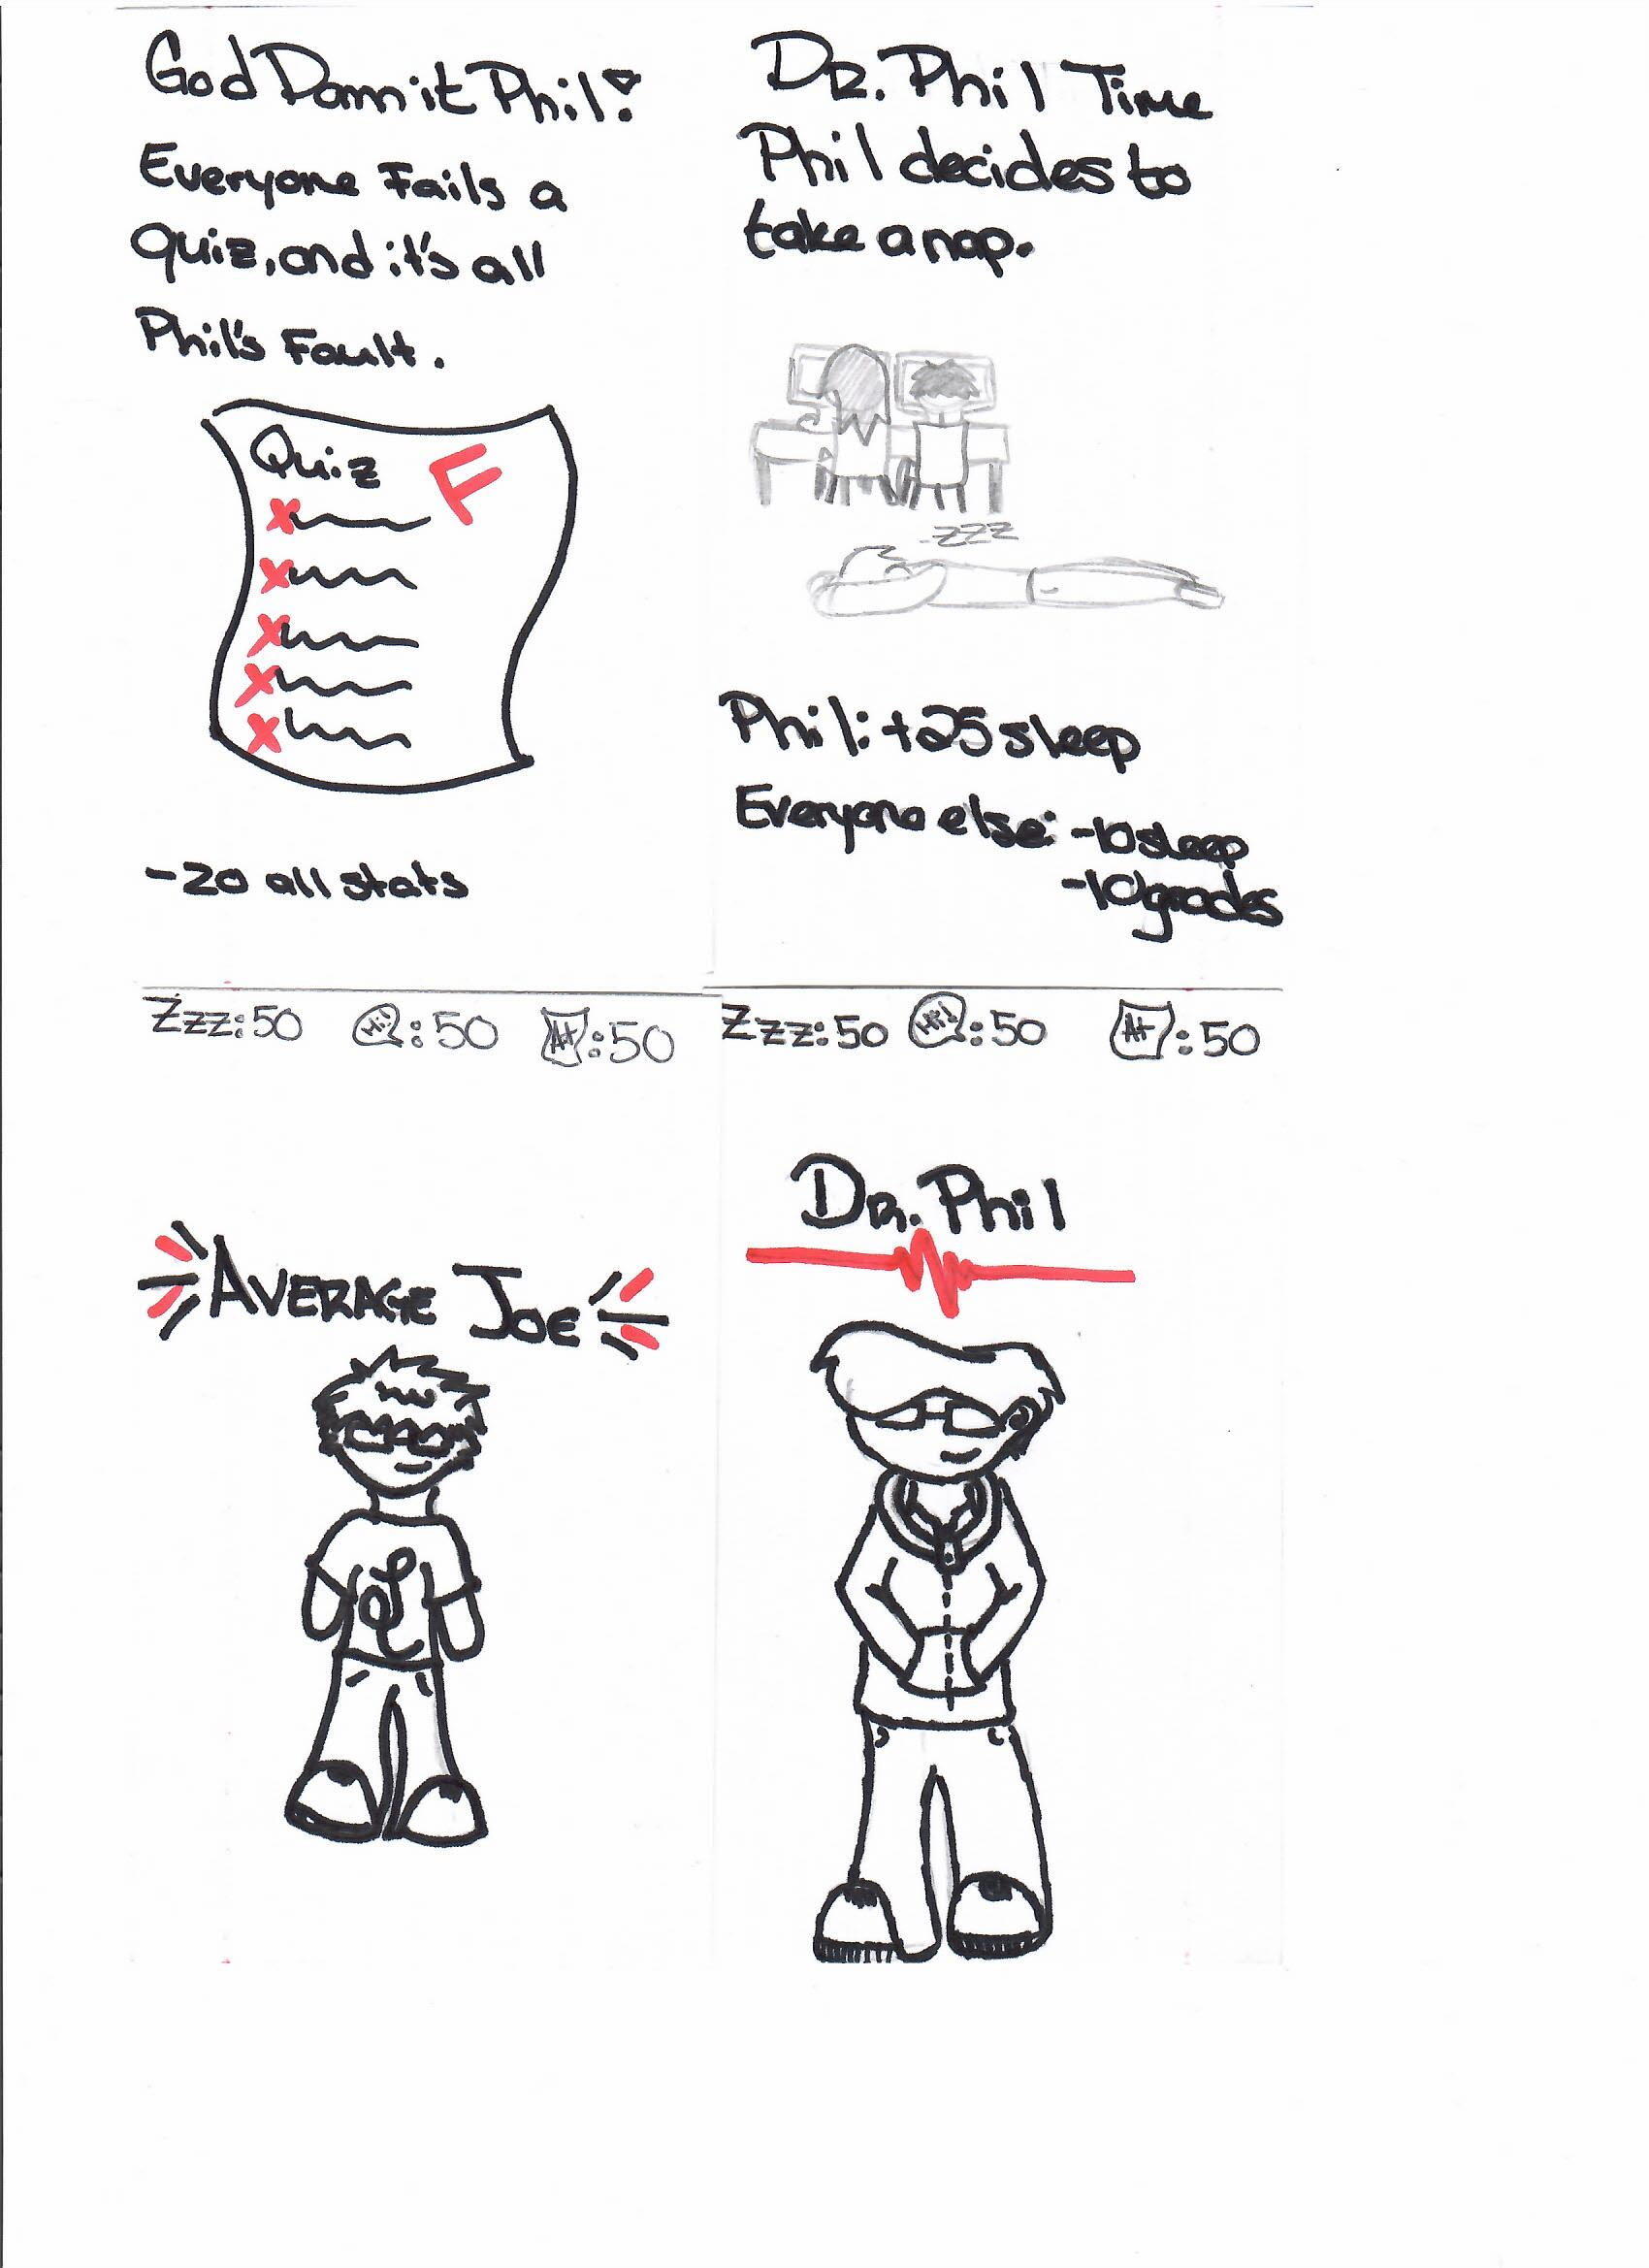 God Damn it Phil!
Everyone Fails a
Quiz, and it's all
Phil's Fault.
Quiz F
-20 all stats
Dr. Phil Time
Phil decides to
take a nap.
-zzz
Phil: +25 sleep
Everyone else: -10 sleep
-10 grades
Zzz:50 Hi!:50 A+:50
AVERAGE JOE
Zzz:50 Hi!:50 A+:50
DR. Phil